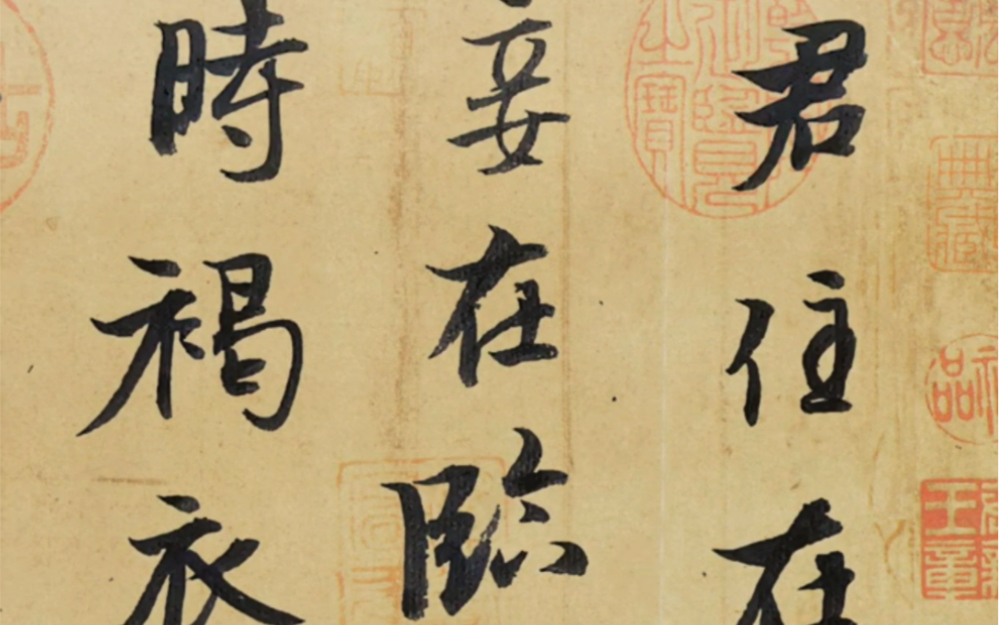 君住在
妾在臨
時褐衣